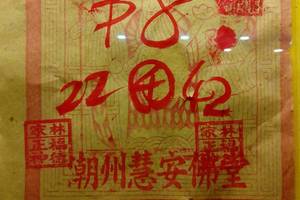 中8
22 中 62
林福德
家正神
林福德
家正神
潮州慧安佛堂